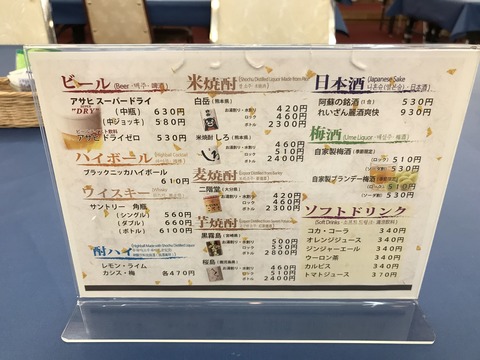 ビール (Beer ·맥주· 啤酒)
アサヒ スーパードライ
"DRY"
(中瓶) 630円
(中ジョッキ) 580円
アサヒ ドライゼロ 530円
ハイボール
ブラックニッカハイボール
610円
ウイスキー
サントリー 角瓶
(シングル) 560円
(ダブル) 660円
(ボトル) 6100円
酎ハイ
レモン・ライム
カシス・梅 各470円
米焼酎
白岳 (熊本県)
お湯割り・水割り 420円
ロック 460円
ボトル 2300円
米焼酎 しろ (熊本県)
お湯割り・水割り 460円
ロック 510円
ボトル 2400円
麦焼酎
二階堂 (大分県)
お湯割り・水割り 420円
ロック 460円
ボトル 2300円
芋焼酎
黒霧島 (宮崎県)
お湯割り・水割り 500円
ロック 550円
ボトル 2800円
桜島 (鹿児島県)
お湯割り・水割り 460円
ロック 510円
ボトル 2400円
日本酒 (Japanese Sake
阿蘇の銘酒 (1合) 530円
れいざん麗酒爽快 930円
梅酒
自家製梅酒 (季節限定)
(ロック) 510円
(ソーダ割) 510円
自家製ブランデー梅酒 (季節限定)
(ロック) 510円
(ソーダ割) 530円
ソフトドリンク
コカ・コーラ 340円
オレンジジュース 340円
ジンジャーエール 340円
ウーロン茶 340円
カルピス 340円
トマトジュース 370円